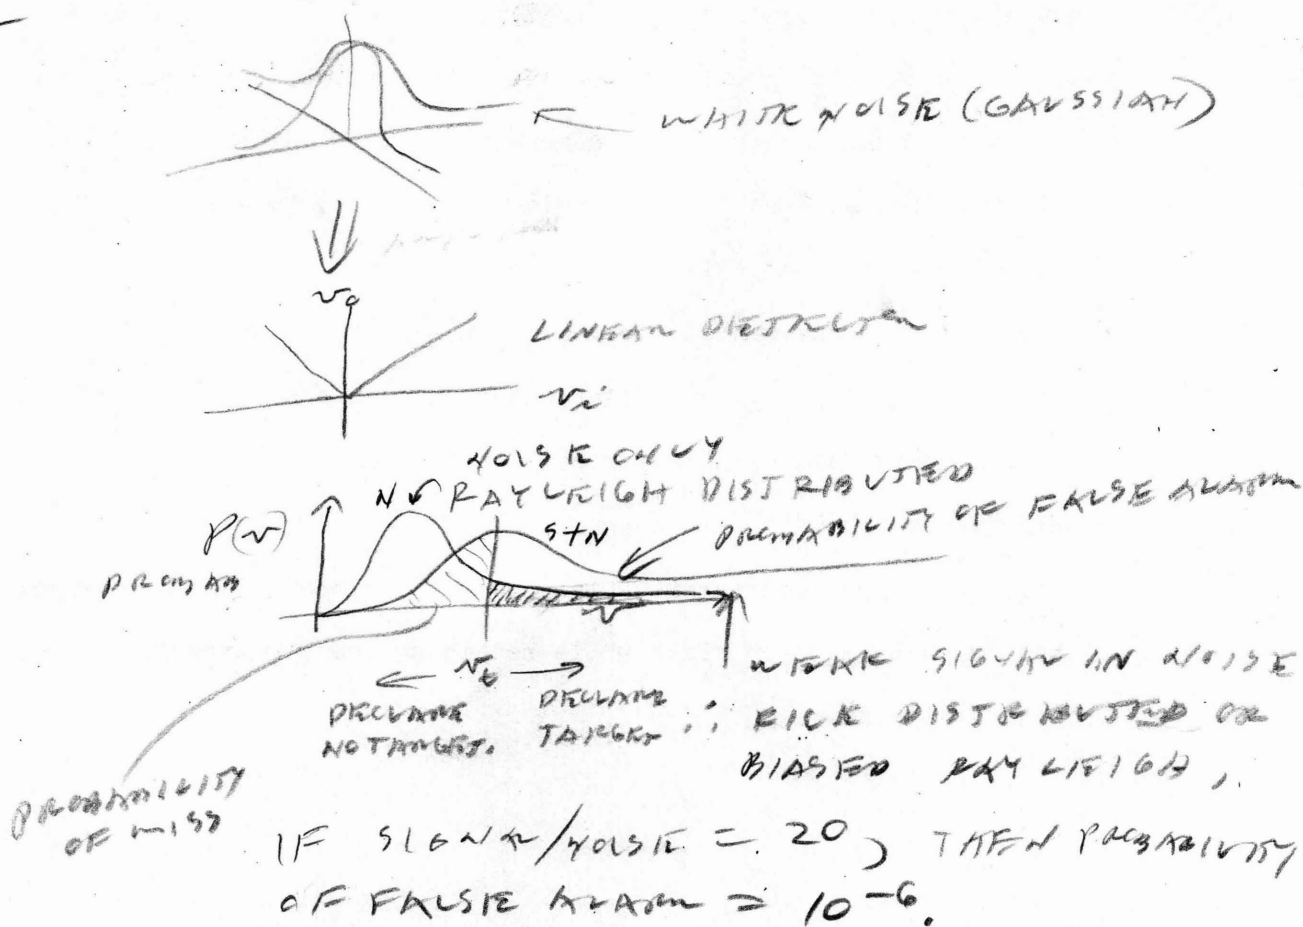 WHITE NOISE (GAUSSIAN)
v₀
LINEAR DETECTOR
vᵢ
NOISE ONLY
N RAYLEIGH DISTRIBUTED
P(v)
S+N
PROBABILITY OF FALSE ALARM
PROBAB
v
← vₜ →
DECLARE
NO TARGET.
DECLARE
TARGET
∴ WEAK SIGNAL IN NOISE
RICE DISTRIBUTED OR
BIASED RAYLEIGH,
PROBABILITY
OF MISS
IF SIGNAL/NOISE = 20, THEN PROBABILITY
OF FALSE ALARM = 10⁻⁶.